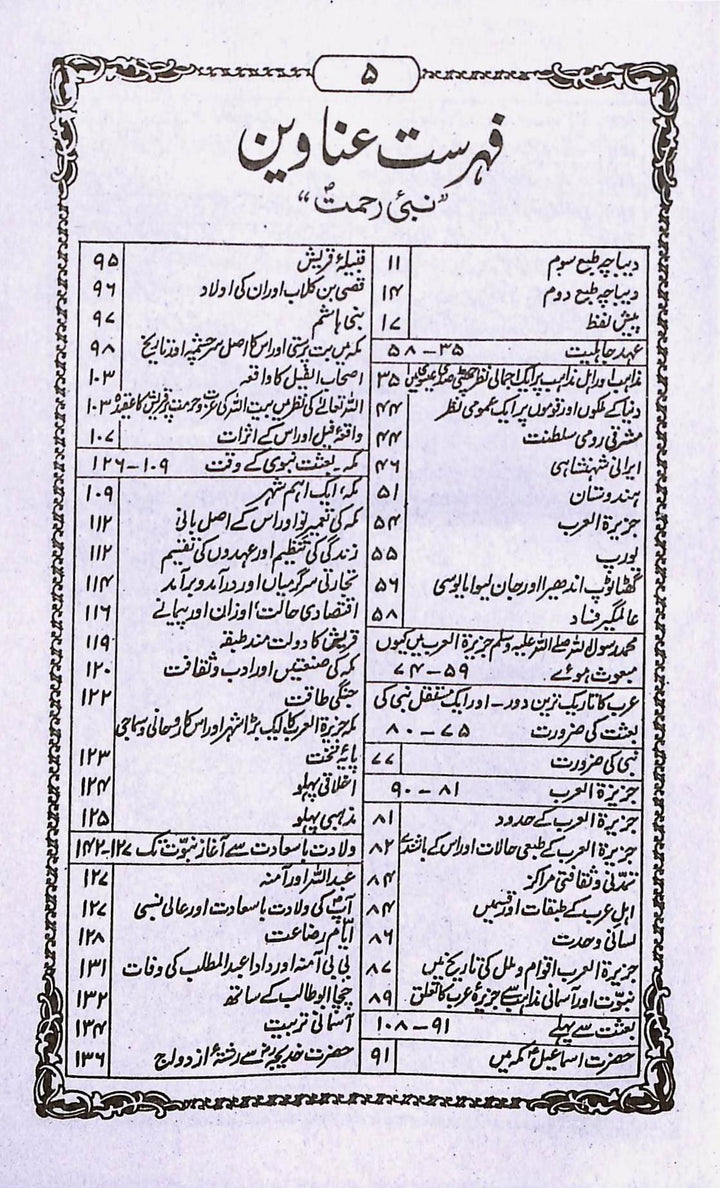 ۵
فہرست عناوین
”نبیٔ رحمتؐ“
دیباچہ طبع سوم ۱۱
دیباچہ طبع دوم ۱۴
پیش لفظ ۱۷
عہد جاہلیت ۳۵ – ۵۸
مذاہب و اہل مذاہب پر ایک اجمالی نظر چھٹی صدی عیسوی میں ۳۵
دنیا کے ملکوں اور قوموں پر ایک عمومی نظر ۴۴
مشرقی رومی سلطنت ۴۴
ایرانی شہنشاہی ۴۶
ہندوستان ۵۱
جزیرۃ العرب ۵۴
یورپ ۵۵
گھٹاٹوپ اندھیرا اور جان لیوا مایوسی ۵۶
عالمگیر فساد ۵۸
محمد رسول اللہ صلے اللہ علیہ وسلم جزیرۃ العرب میں کیوں
مبعوث ہوئے ۵۹ – ۷۴
عرب کا تاریک ترین دور – اور ایک مستقل نبی کی
بعثت کی ضرورت ۷۵ – ۸۰
نبی کی ضرورت ۷۷
جزیرۃ العرب ۸۱ – ۹۰
جزیرۃ العرب کے حدود ۸۱
جزیرۃ العرب کے طبعی حالات اور اس کے باشندے ۸۲
تمدّنی و ثقافتی مراکز ۸۴
اہل عرب کے طبقات اور قسمیں ۸۴
لسانی وحدت ۸۶
جزیرۃ العرب اقوام و ملل کی تاریخ میں ۸۷
نبوّت اور آسمانی مذاہب سے جزیرۂ عرب کا تعلق ۸۹
بعثت سے پہلے ۹۱ – ۱۰۸
حضرت اسماعیلؑ مکہ میں ۹۱
قبیلۂ قریش ۹۵
قصی بن کلاب اور ان کی اولاد ۹۶
بنی ہاشم ۹۷
مکہ میں بت پرستی اور اس کا اصل سرچشمہ اور تاریخ ۹۸
اصحاب الفیل کا واقعہ ۱۰۳
اللہ تعالےٰ کی نظر میں بیت اللہ کی عزت و حرمت پر قریش کا عقیدہ ۱۰۳
واقعۂ فیل اور اس کے اثرات ۱۰۷
مکہ – بعثت نبوی کے وقت ۱۰۹ – ۱۲۶
مکہ، ایک اہم شہر ۱۰۹
مکہ کی تعمیر نو اور اس کے اصل بانی ۱۱۲
زندگی کی تنظیم اور عہدوں کی تقسیم ۱۱۲
تجارتی سرگرمیاں اور درآمد و برآمد ۱۱۴
اقتصادی حالت، اوزان اور پیمانے ۱۱۶
قریش کا دولت مند طبقہ ۱۱۹
مکہ کی صنعتیں اور ادب و ثقافت ۱۲۰
جنگی طاقت ۱۲۲
مکہ جزیرۃ العرب کا ایک بڑا شہر اور اس کا روحانی و سماجی
پایۂ تخت ۱۲۳
اخلاقی پہلو ۱۲۴
مذہبی پہلو ۱۲۵
ولادت باسعادت سے آغاز نبوّت تک ۱۲۷ – ۱۴۲
عبد اللہ اور آمنہ ۱۲۷
آپؐ کی ولادت باسعادت اور عالی نسبی ۱۲۷
ایّام رضاعت ۱۲۸
بی بی آمنہ اور دادا عبد المطلب کی وفات ۱۳۱
چچا ابو طالب کے ساتھ ۱۳۲
آسمانی تربیت ۱۳۴
حضرت خدیجہؓ سے رشتۂ ازدواج ۱۳۶